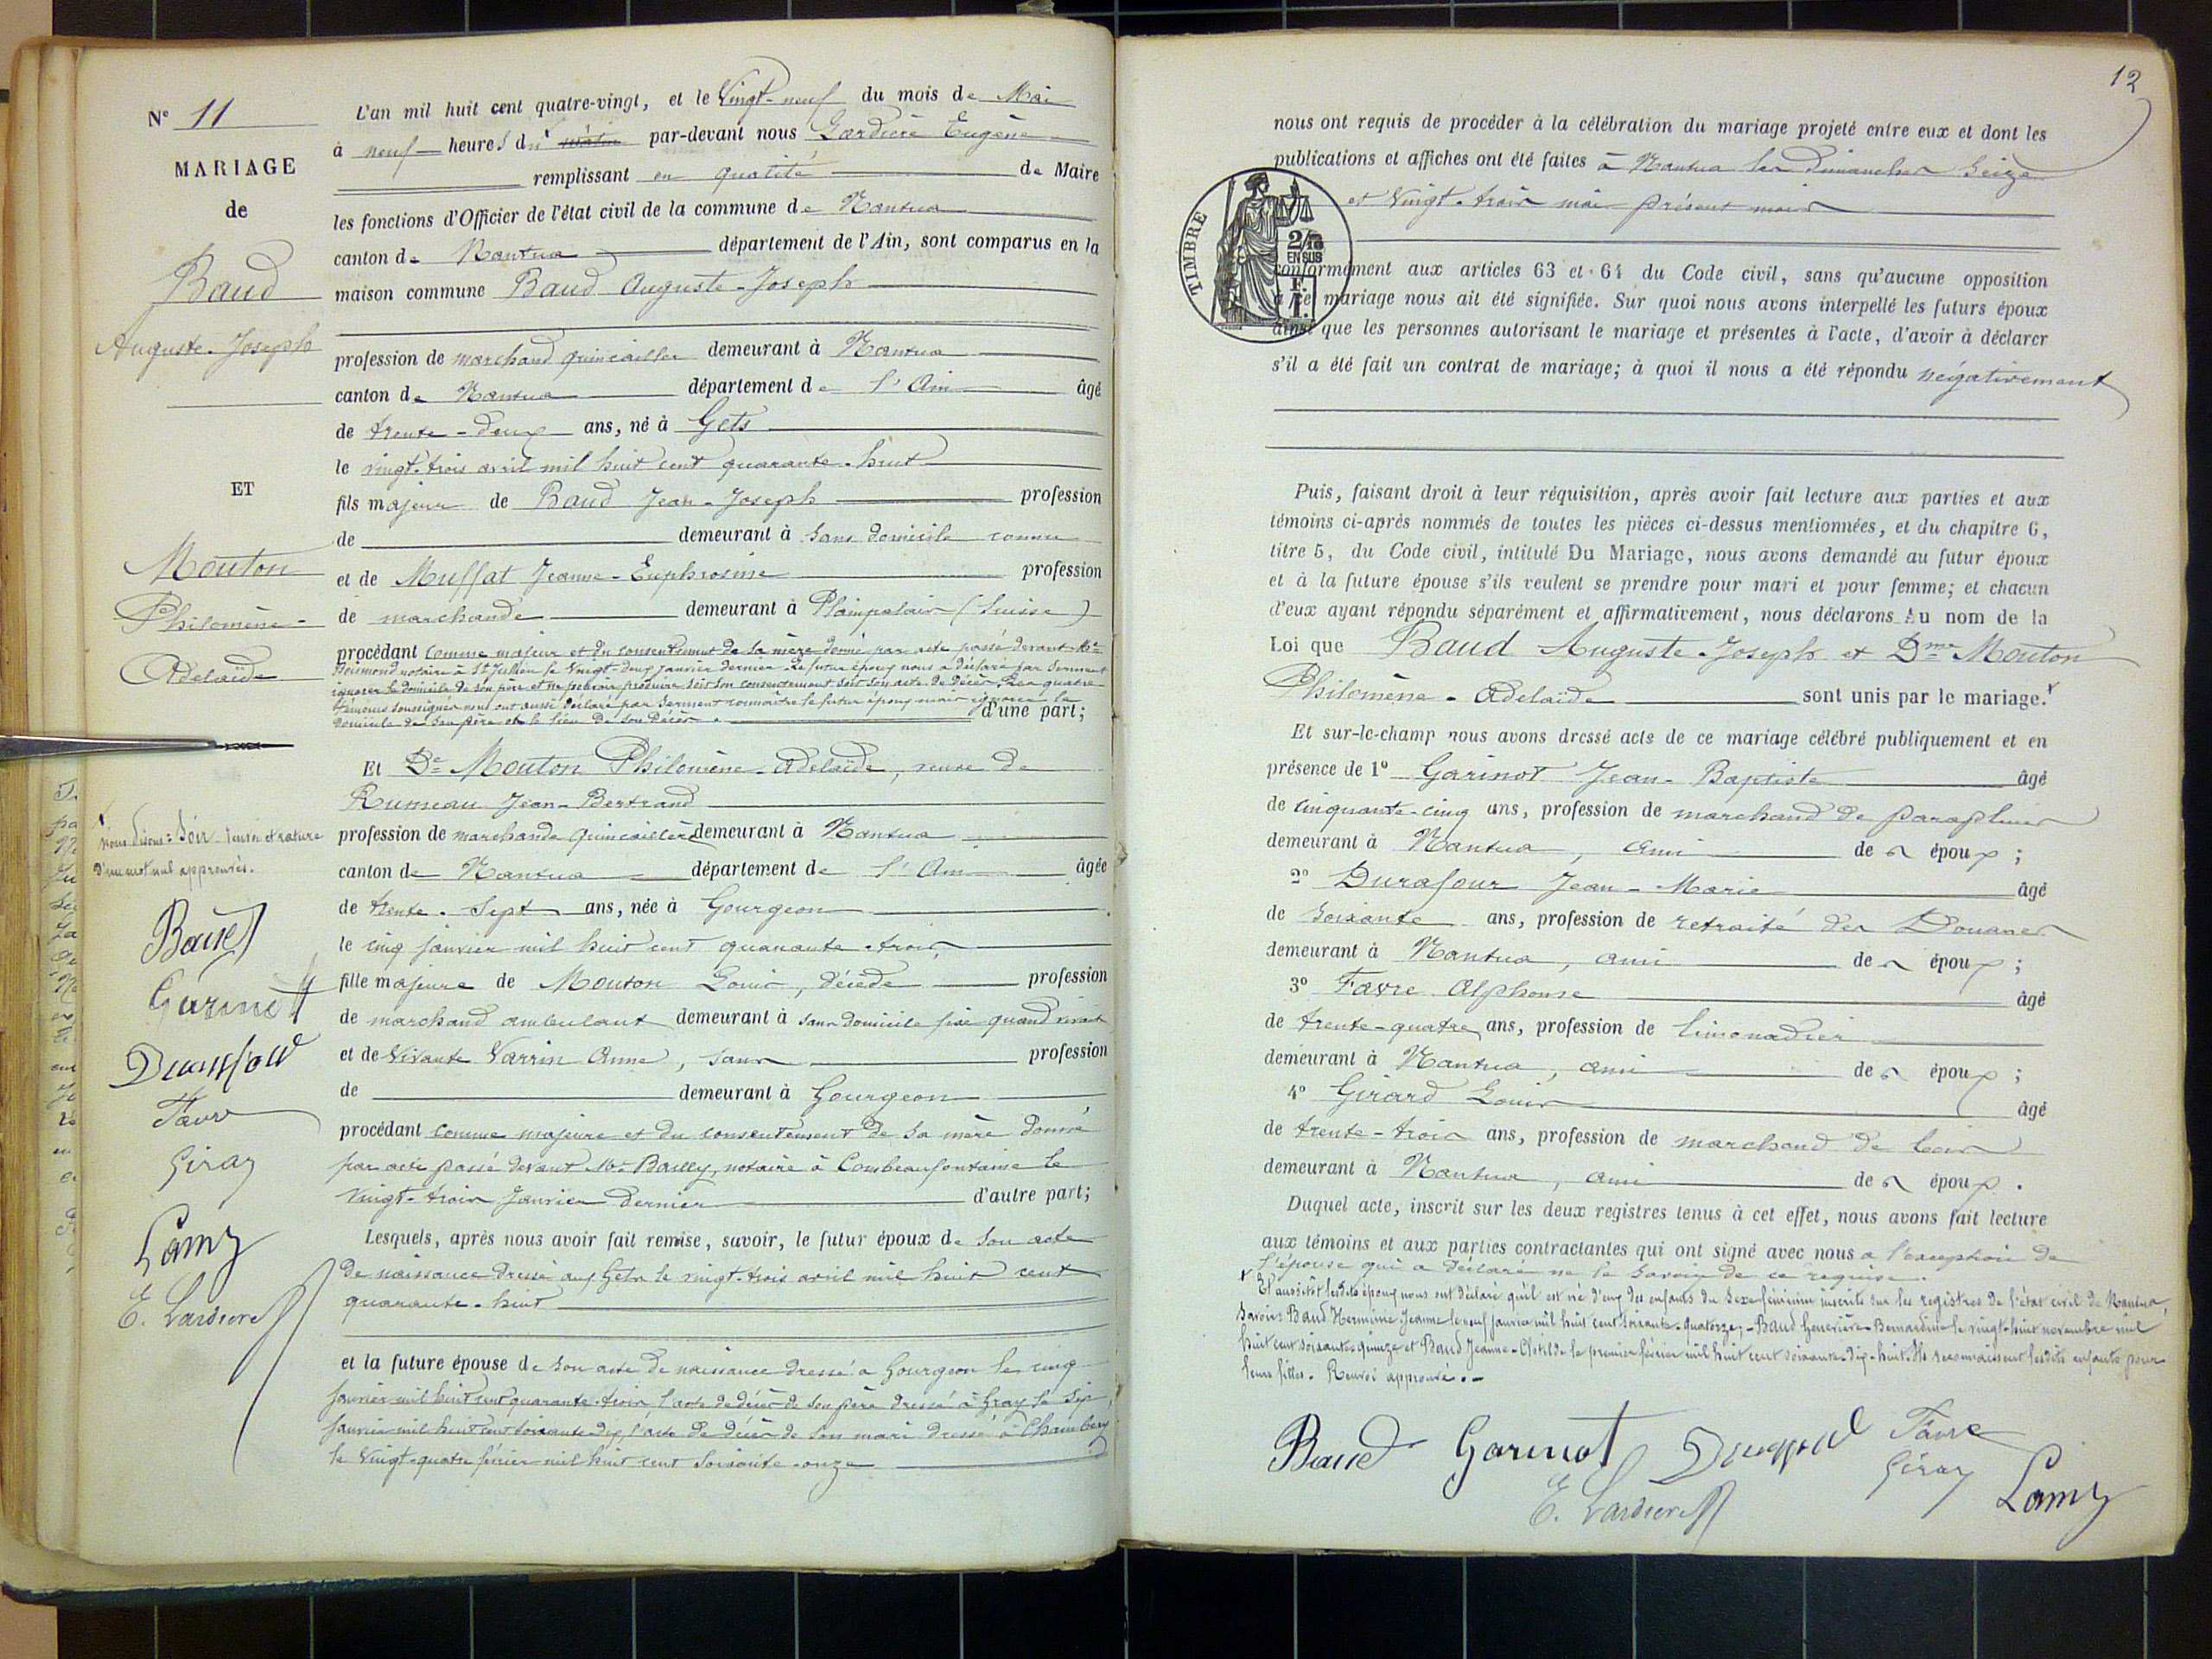 N° 11
MARIAGE
de
Baud
Auguste-Joseph
ET
Mouton
Philomène-
Adelaïde
nous disons: Soir. renvoi et rature
d'un mot nul approuvés.
Baud
Garinot
Favre
Giray
Lamy
E. Lardiere
L'an mil huit cent quatre-vingt, et le Vingt-neuf du mois de Mai
à neuf heures du matin par-devant nous Lardière Eugène
remplissant en qualité de Maire
les fonctions d'Officier de l'état civil de la commune de Nantua
canton de Nantua département de l'Ain, sont comparus en la
maison commune Baud Auguste-Joseph
profession de marchand quincailler demeurant à Nantua
canton de Nantua département de l'Ain âgé
de trente-deux ans, né à Gets
le vingt-trois avril mil huit cent quarante-huit
fils majeur de Baud Jean-Joseph profession
de demeurant à sans domicile connu
et de Muffat Jeanne-Euphrosine profession
de marchande demeurant à Plainpalais (Suisse)
procédant comme majeur et du consentement de sa mère donné par acte passé devant Me
notaire à St Jullien le Vingt-deux janvier dernier. Le futur époux nous a déclaré par serment
ignorer le domicile de son père et ne pouvoir produire soit son consentement soit son acte de décès. Les quatre
témoins soussignés nous ont aussi déclaré par serment connaître le futur époux mais ignorer le
domicile de son père et le lieu de son décès. d'une part;
Et De Mouton Philomène-Adelaïde, veuve de
Rumeau Jean-Bertrand
profession de marchande quincaillère demeurant à Nantua
canton de Nantua département de l'Ain âgée
de trente-sept ans, née à Gourgeon
le cinq janvier mil huit cent quarante-trois
fille majeure de Mouton Louis, décédé profession
de marchand ambulant demeurant à sans domicile fixe quand vivait
et de Vivante Varrin Anne, sans profession
de demeurant à Gourgeon
procédant comme majeure et du consentement de sa mère donné
par acte passé devant Me Bailly, notaire à Combeaufontaine le
vingt-trois Janvier dernier d'autre part;
Lesquels, après nous avoir fait remise, savoir, le futur époux de son acte
de naissance dressé aux Gets le vingt-trois avril mil huit cent
quarante-huit
et la future épouse de son acte de naissance dressé à Gourgeon le cinq
Janvier mil huit cent quarante-trois, l'acte de décès de son père dressé à Gray le six
Janvier mil huit cent soixante-dix, l'acte de décès de son mari dressé à Chambery
le vingt-quatre février mil huit cent soixante-onze
12
nous ont requis de procéder à la célébration du mariage projeté entre eux et dont les
publications et affiches ont été faites à Nantua les Dimanches Seize
et Vingt-trois mai présent mois
TIMBRE
2/10
EN SUS
F.
1.
conformément aux articles 63 et 64 du Code civil, sans qu'aucune opposition
à ce mariage nous ait été signifiée. Sur quoi nous avons interpellé les futurs époux
ainsi que les personnes autorisant le mariage et présentes à l'acte, d'avoir à déclarer
s'il a été fait un contrat de mariage; à quoi il nous a été répondu négativement
Puis, faisant droit à leur réquisition, après avoir fait lecture aux parties et aux
témoins ci-après nommés de toutes les pièces ci-dessus mentionnées, et du chapitre 6,
titre 5, du Code civil, intitulé Du Mariage, nous avons demandé au futur époux
et à la future épouse s'ils veulent se prendre pour mari et pour femme; et chacun
d'eux ayant répondu séparément et affirmativement, nous déclarons Au nom de la
Loi que Baud Auguste-Joseph et Dme Mouton
Philomène-Adelaïde sont unis par le mariage. x
Et sur-le-champ nous avons dressé acte de ce mariage célébré publiquement et en
présence de 1° Garinot Jean-Baptiste âgé
de cinquante-cinq ans, profession de marchand de parapluies
demeurant à Nantua, ami des époux;
2° Durafour Jean-Marie âgé
de soixante ans, profession de retraité des Douanes
demeurant à Nantua, ami des époux;
3° Favre Alphonse âgé
de trente-quatre ans, profession de limonadier
demeurant à Nantua, ami des époux;
4° Girard Louis âgé
de trente-trois ans, profession de marchand de
demeurant à Nantua, ami des époux.
Duquel acte, inscrit sur les deux registres tenus à cet effet, nous avons fait lecture
aux témoins et aux parties contractantes qui ont signé avec nous à l'exception de
l'épouse qui a déclaré ne le savoir de ce requise.
x Et aussitôt lesdits époux nous ont déclaré qu'il est né d'eux des enfants du sexe féminin inscrits sur les registres de l'état civil de Nantua,
savoir: Baud Herminie Jeanne le neuf janvier mil huit cent soixante-quatorze; - Baud Geneviève-Bernardine le vingt-huit novembre mil
huit cent soixante-quinze et Baud Jeanne-Clotilde le premier février mil huit cent soixante-dix-huit. Ils reconnaissent lesdits enfants pour
leurs filles. Renvoi approuvé.-
Baud Garinot Favre
Giray
E. Lardiere Lamy